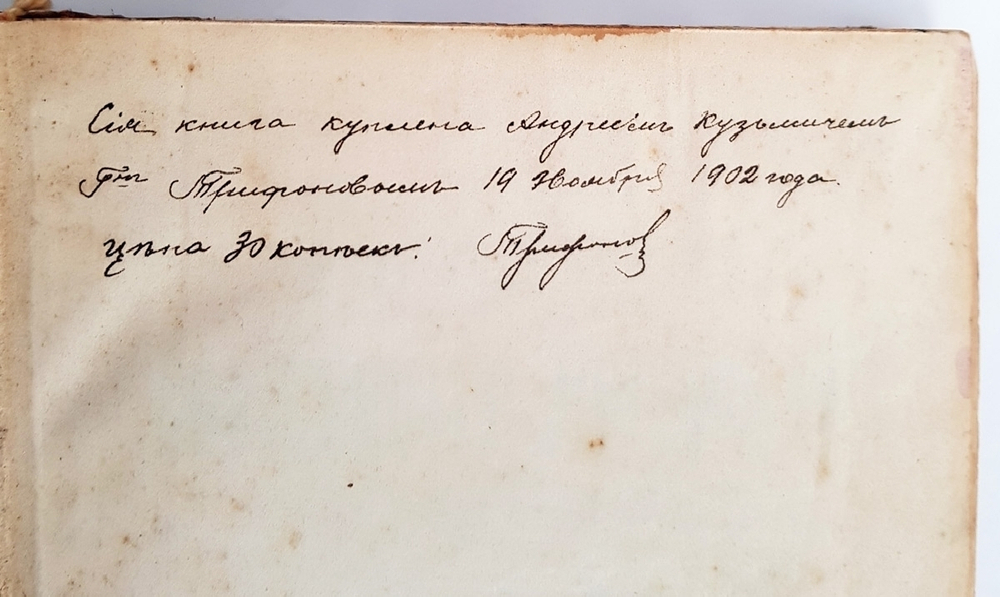 Сія книга куплена Андреемъ Кузьмичемъ
Трифоновымъ 19 Ноября 1902 года.
цѣна 30 копѣекъ. Трифоновъ